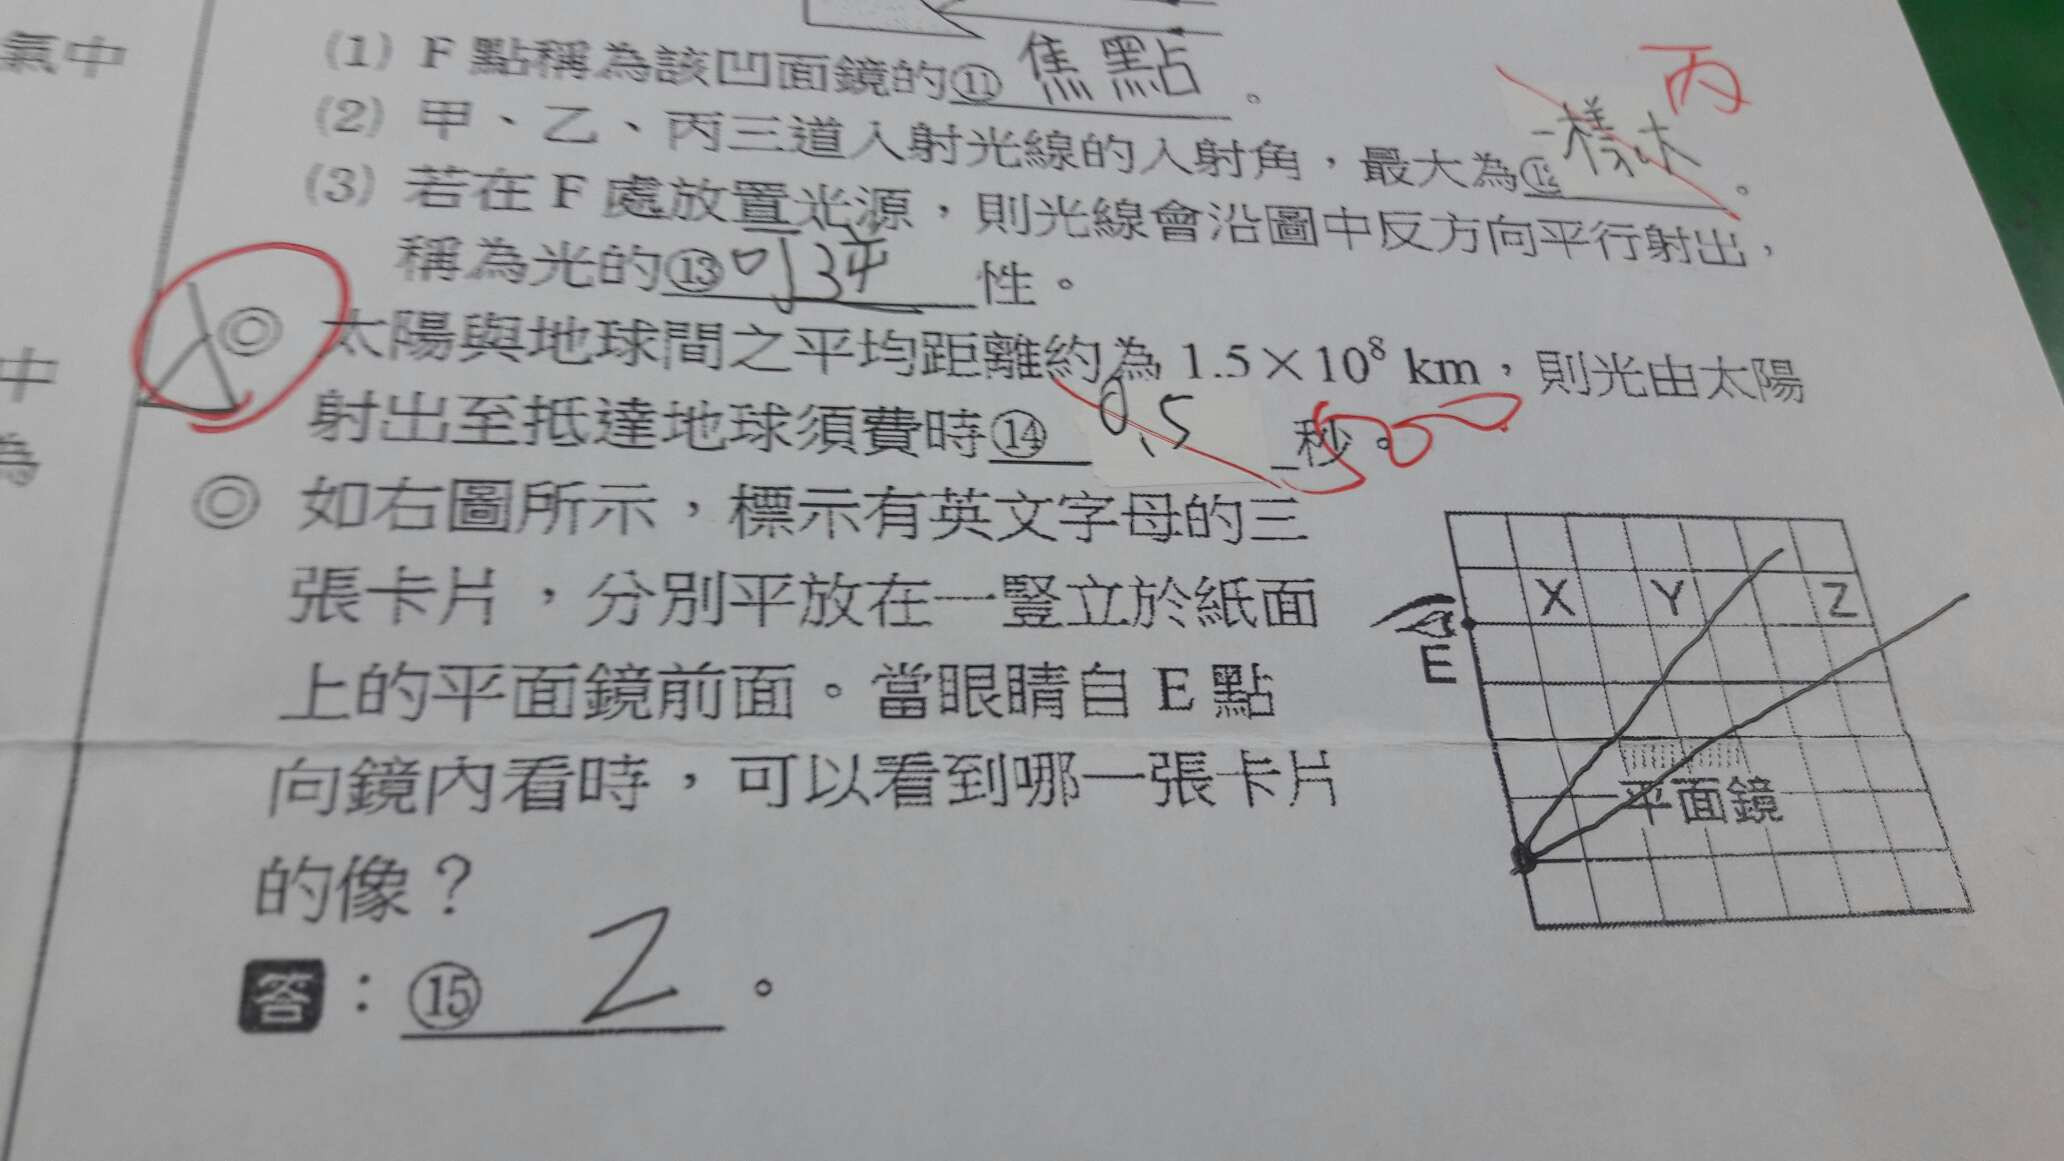 氣中
中
為
(1) F 點稱為該凹面鏡的⑪ 焦點 。
丙
(2) 甲、乙、丙三道入射光線的入射角，最大為⑫ 一樣大 。
(3) 若在 F 處放置光源，則光線會沿圖中反方向平行射出，
稱為光的⑬ 可逆 性。
◎ 太陽與地球間之平均距離約為 1.5×10⁸ km，則光由太陽
射出至抵達地球須費時⑭ 0.5 秒。 500
◎ 如右圖所示，標示有英文字母的三
張卡片，分別平放在一豎立於紙面
上的平面鏡前面。當眼睛自 E 點
向鏡內看時，可以看到哪一張卡片
的像？
答：⑮ Z 。
X Y Z
E
平面鏡